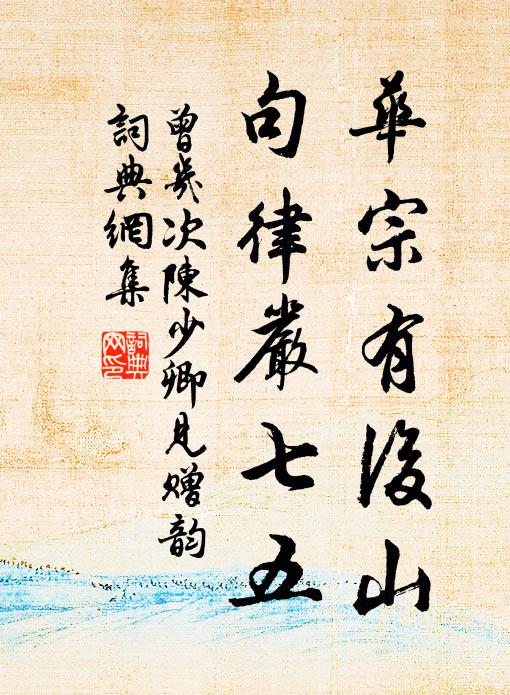 華宗有後山
句律嚴七五
曾幾次陳少卿見贈韵
詞典網集
詞典